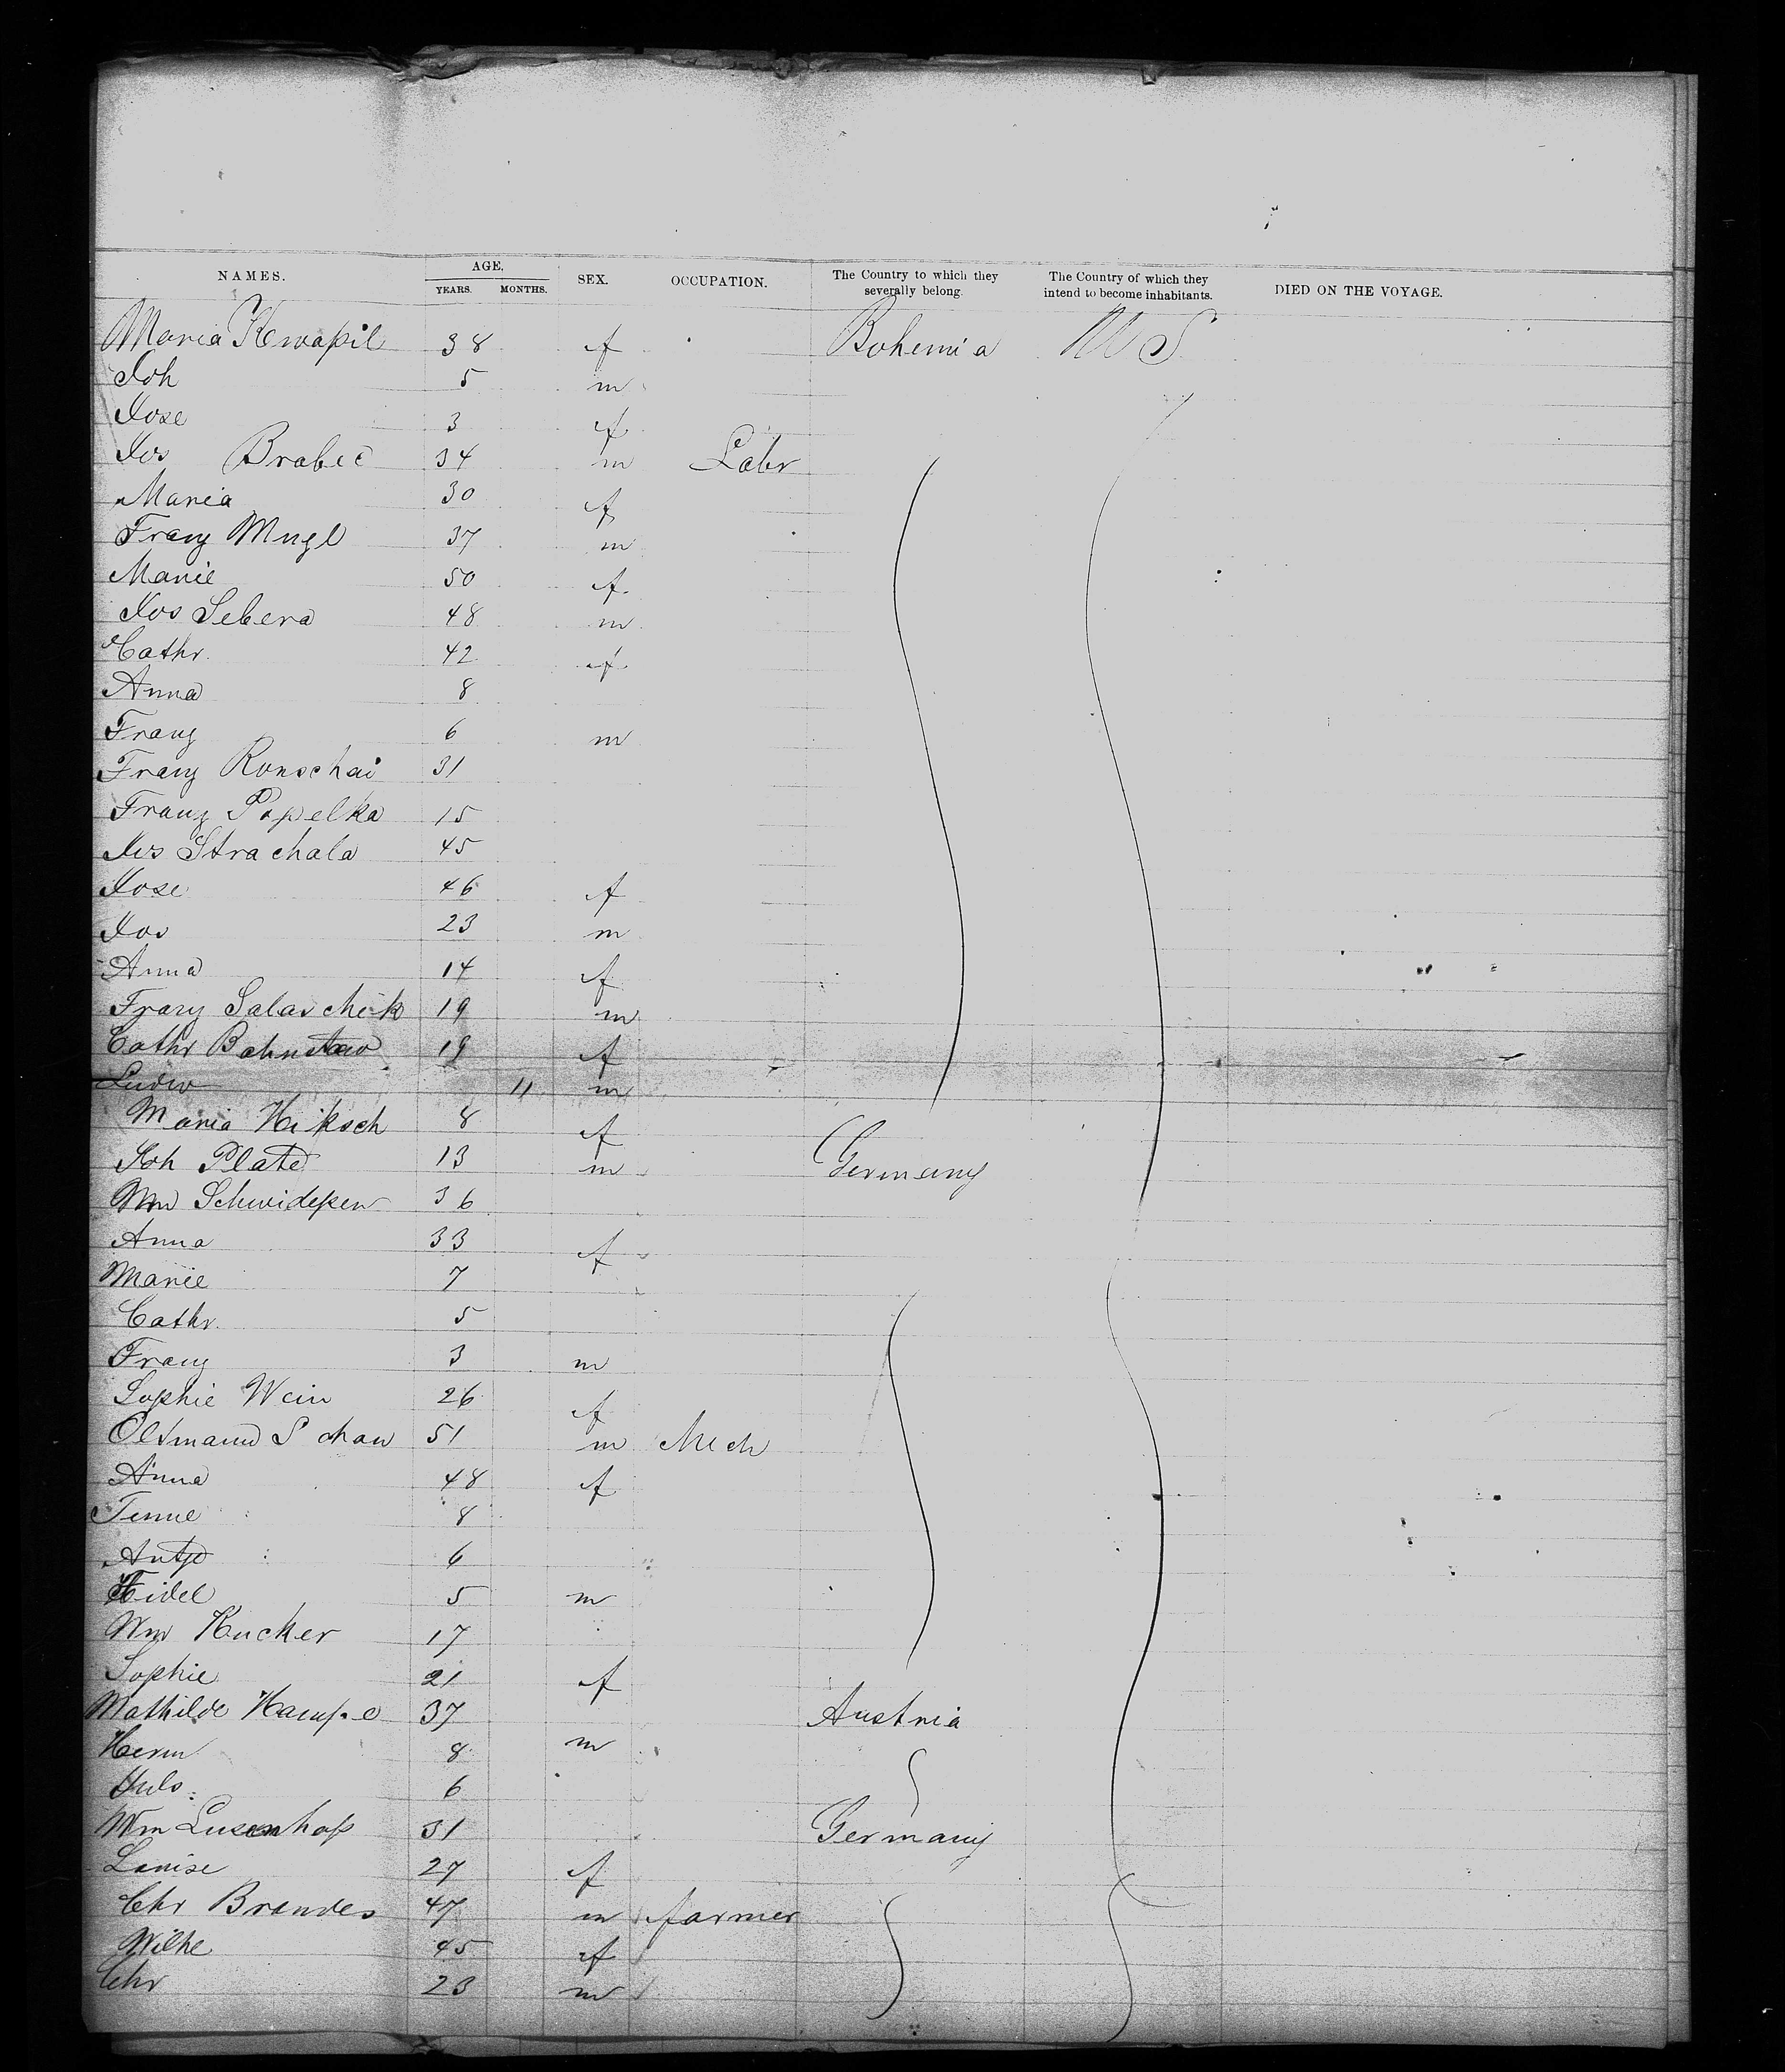 NAMES. AGE. YEARS. MONTHS. SEX. OCCUPATION. The Country to which they severally belong. The Country of which they intend to become inhabitants. DIED ON THE VOYAGE.
Maria Kewapil 38 f Bohemia U S
Joh 5 m
Jose 3 f
Jos Brabec 34 m Labr
Maria 30 f
Franz Mugl 37 m
Marie 50 f
Jos Sebera 48 m
Cathr. 42 f
Anna 8
Franz 6 m
Franz Ronschai 31
Franz Popelka 15
Jos Strachala 45
Jose 46 f
Jos 23 m
Anna 14 f
Franz Salaschek 19 m
Cathr 19 f
Ludw 11 m
Maria Hiksch 8 f
Joh Plate 13 m Germany
Wm 36
Anna 33 f
Marie 7
Cathr. 5
Franz 3 m
Sophie Wein 26 f
Oltmann 51 m Mech
Anna 48 f
8
Antje 6
5 m
Wm Kucker 17
Sophie 21 f
Mathilde Hampe 37 Austria
Herm 8 m
Juls 6
Wm 31 Germany
Louise 27 f
Chr Brandes 47 m farmer
Wilhe 45 f
Chr 23 m